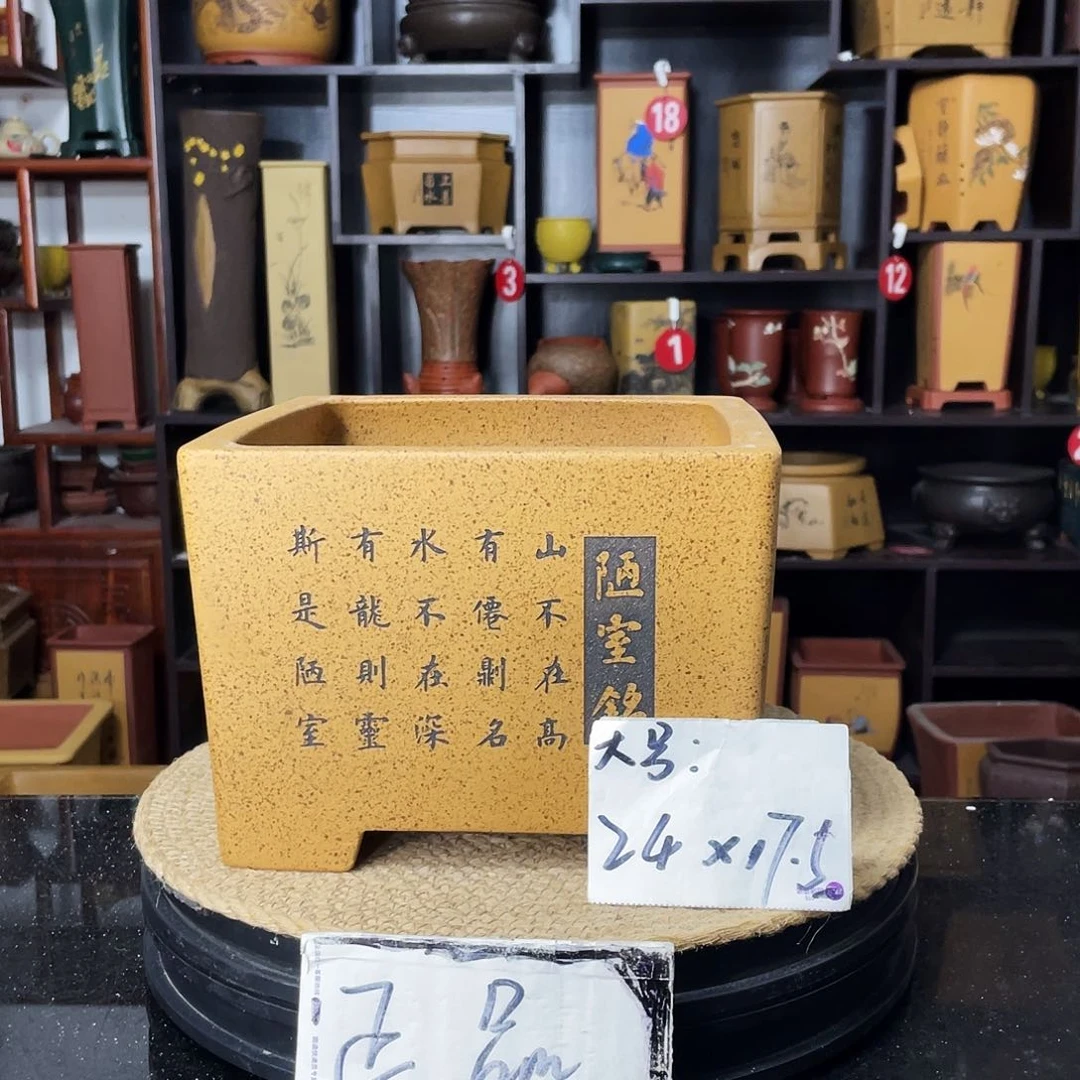 陋室銘
山不在高
有僊則名
水不在深
有龍則靈
斯是陋室
大号:
24×17.5
正品
18
3
12
1